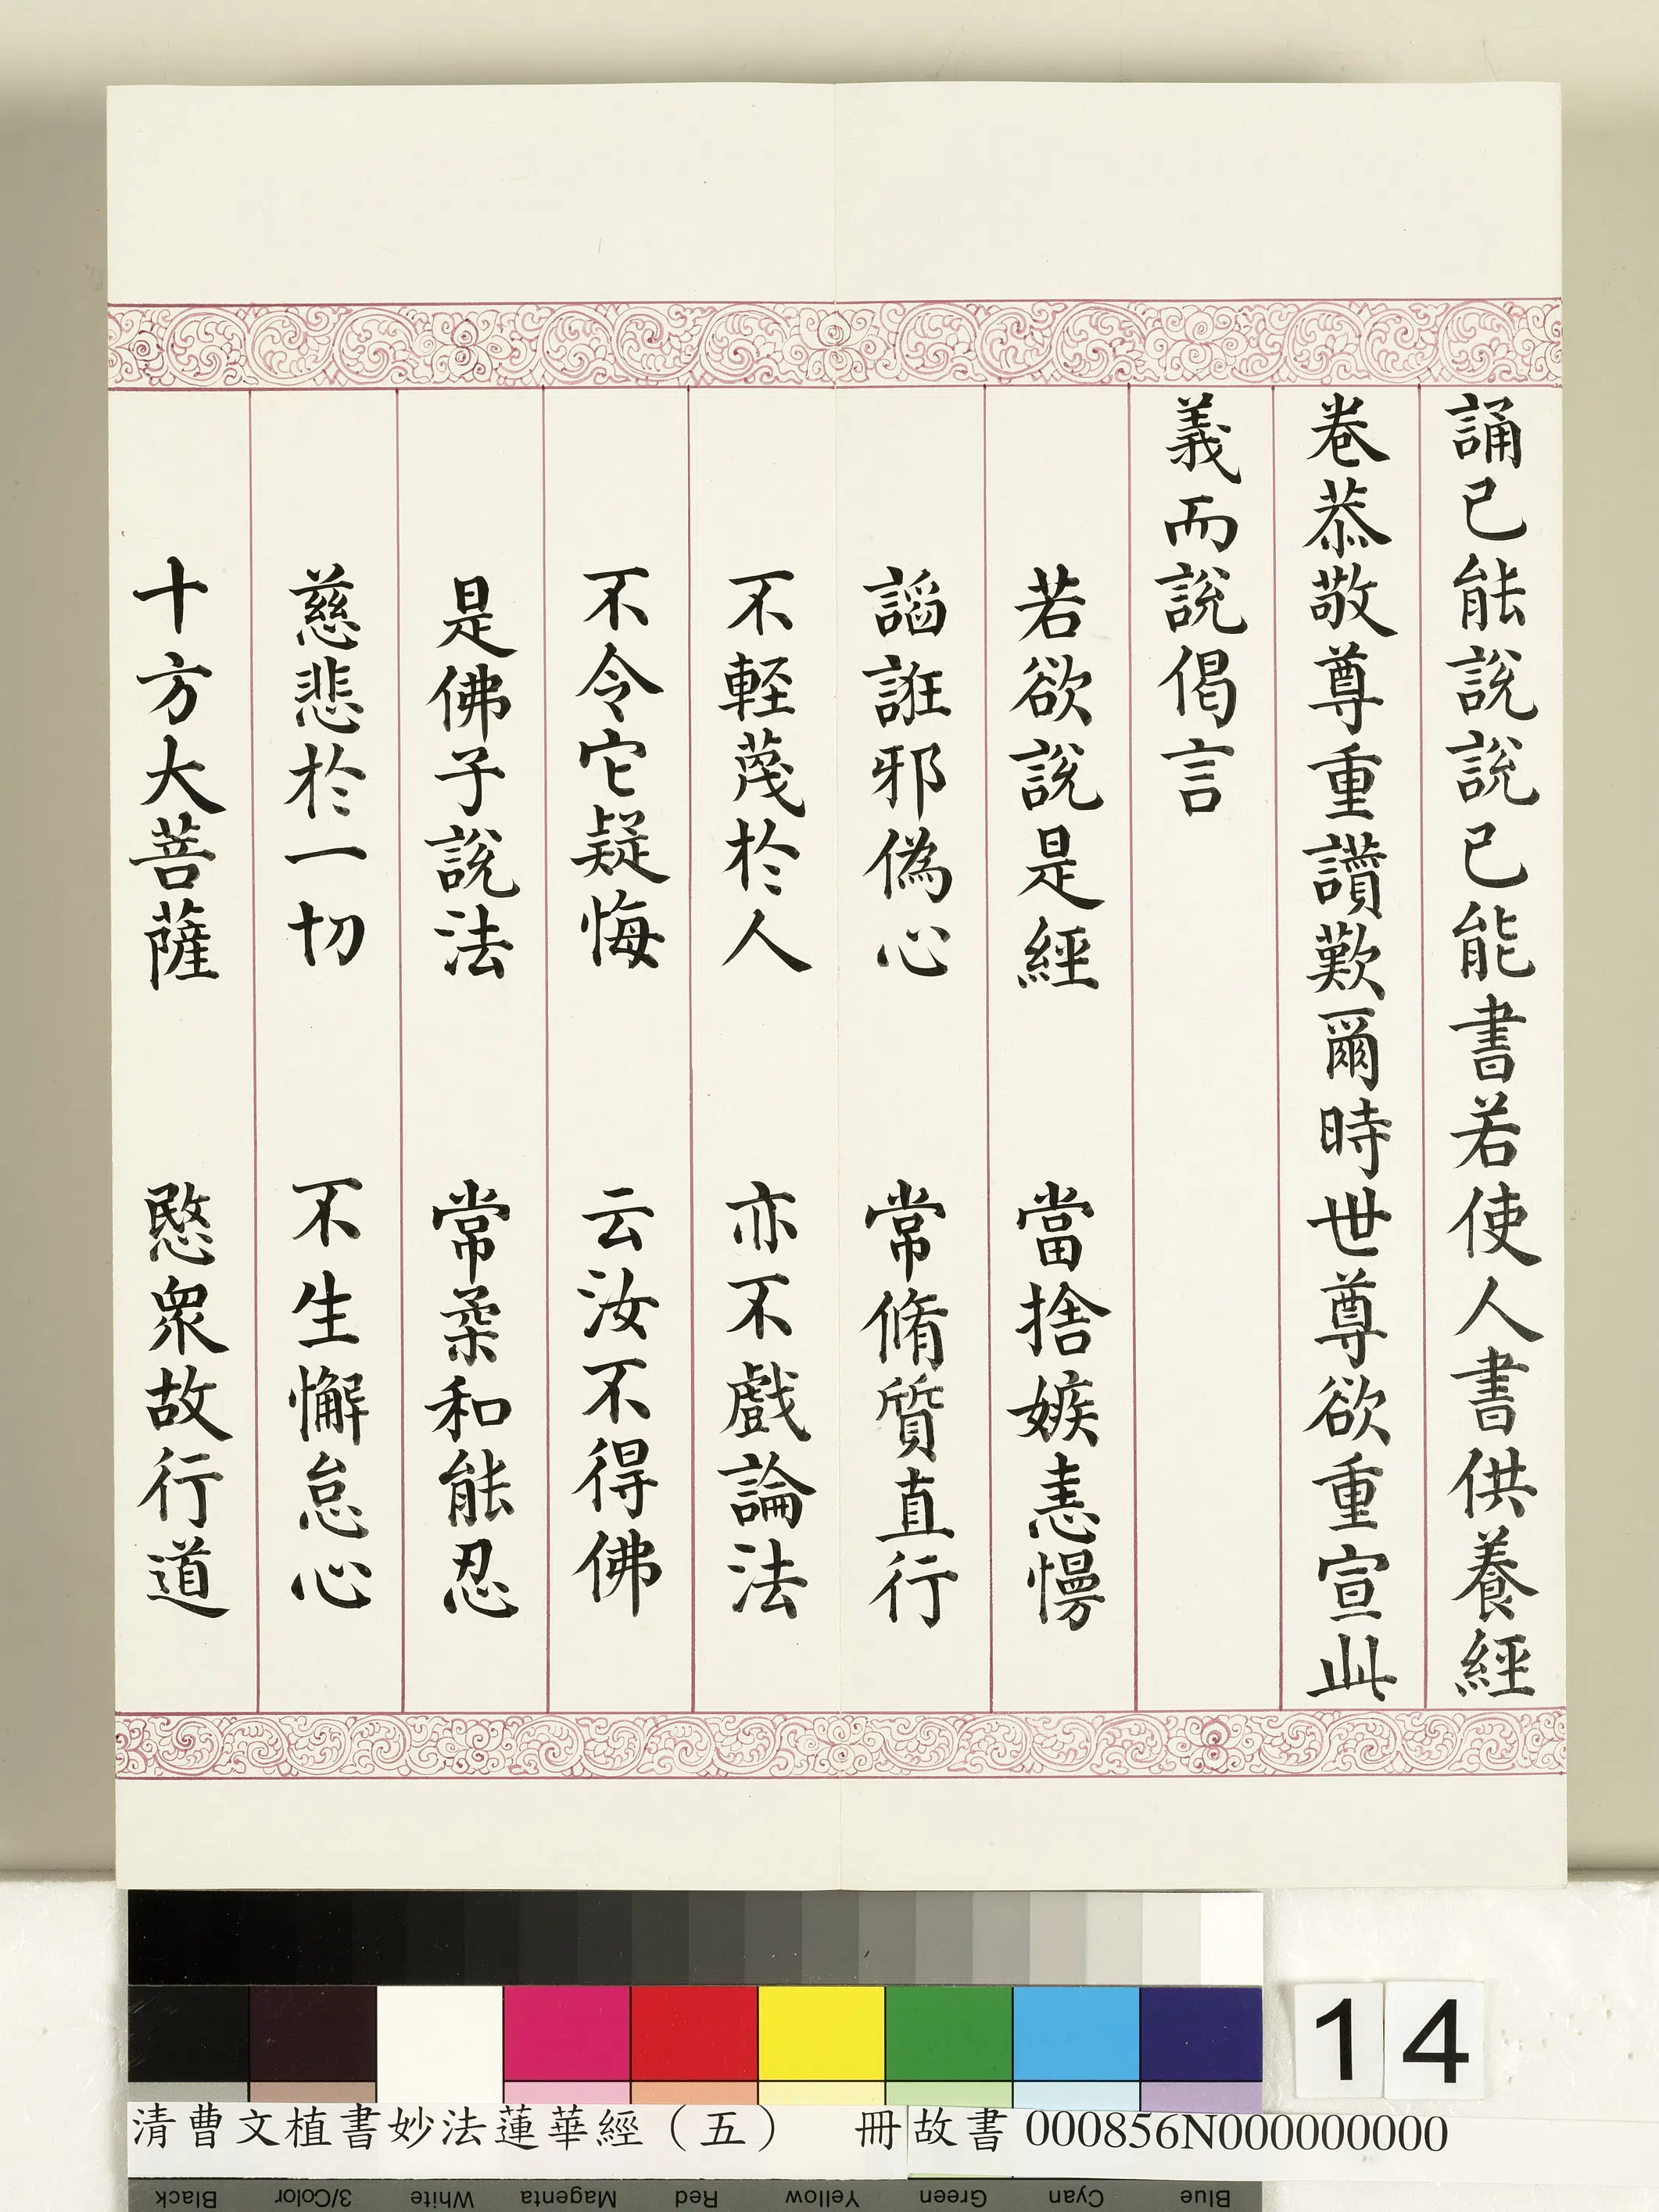 誦已能說說已能書若使人書供養經
卷恭敬尊重讚歎爾時世尊欲重宣此
義而說偈言
若欲說是經　當捨嫉恚慢
諂誑邪偽心　常脩質直行
不輕蔑於人　亦不戲論法
不令它疑悔　云汝不得佛
是佛子說法　常柔和能忍
慈悲於一切　不生懈怠心
十方大菩薩　愍衆故行道
14
清曹文植書妙法蓮華經（五）　冊 故書 000856N000000000
Black 3/Color White Magenta Red Yellow Green Cyan Blue